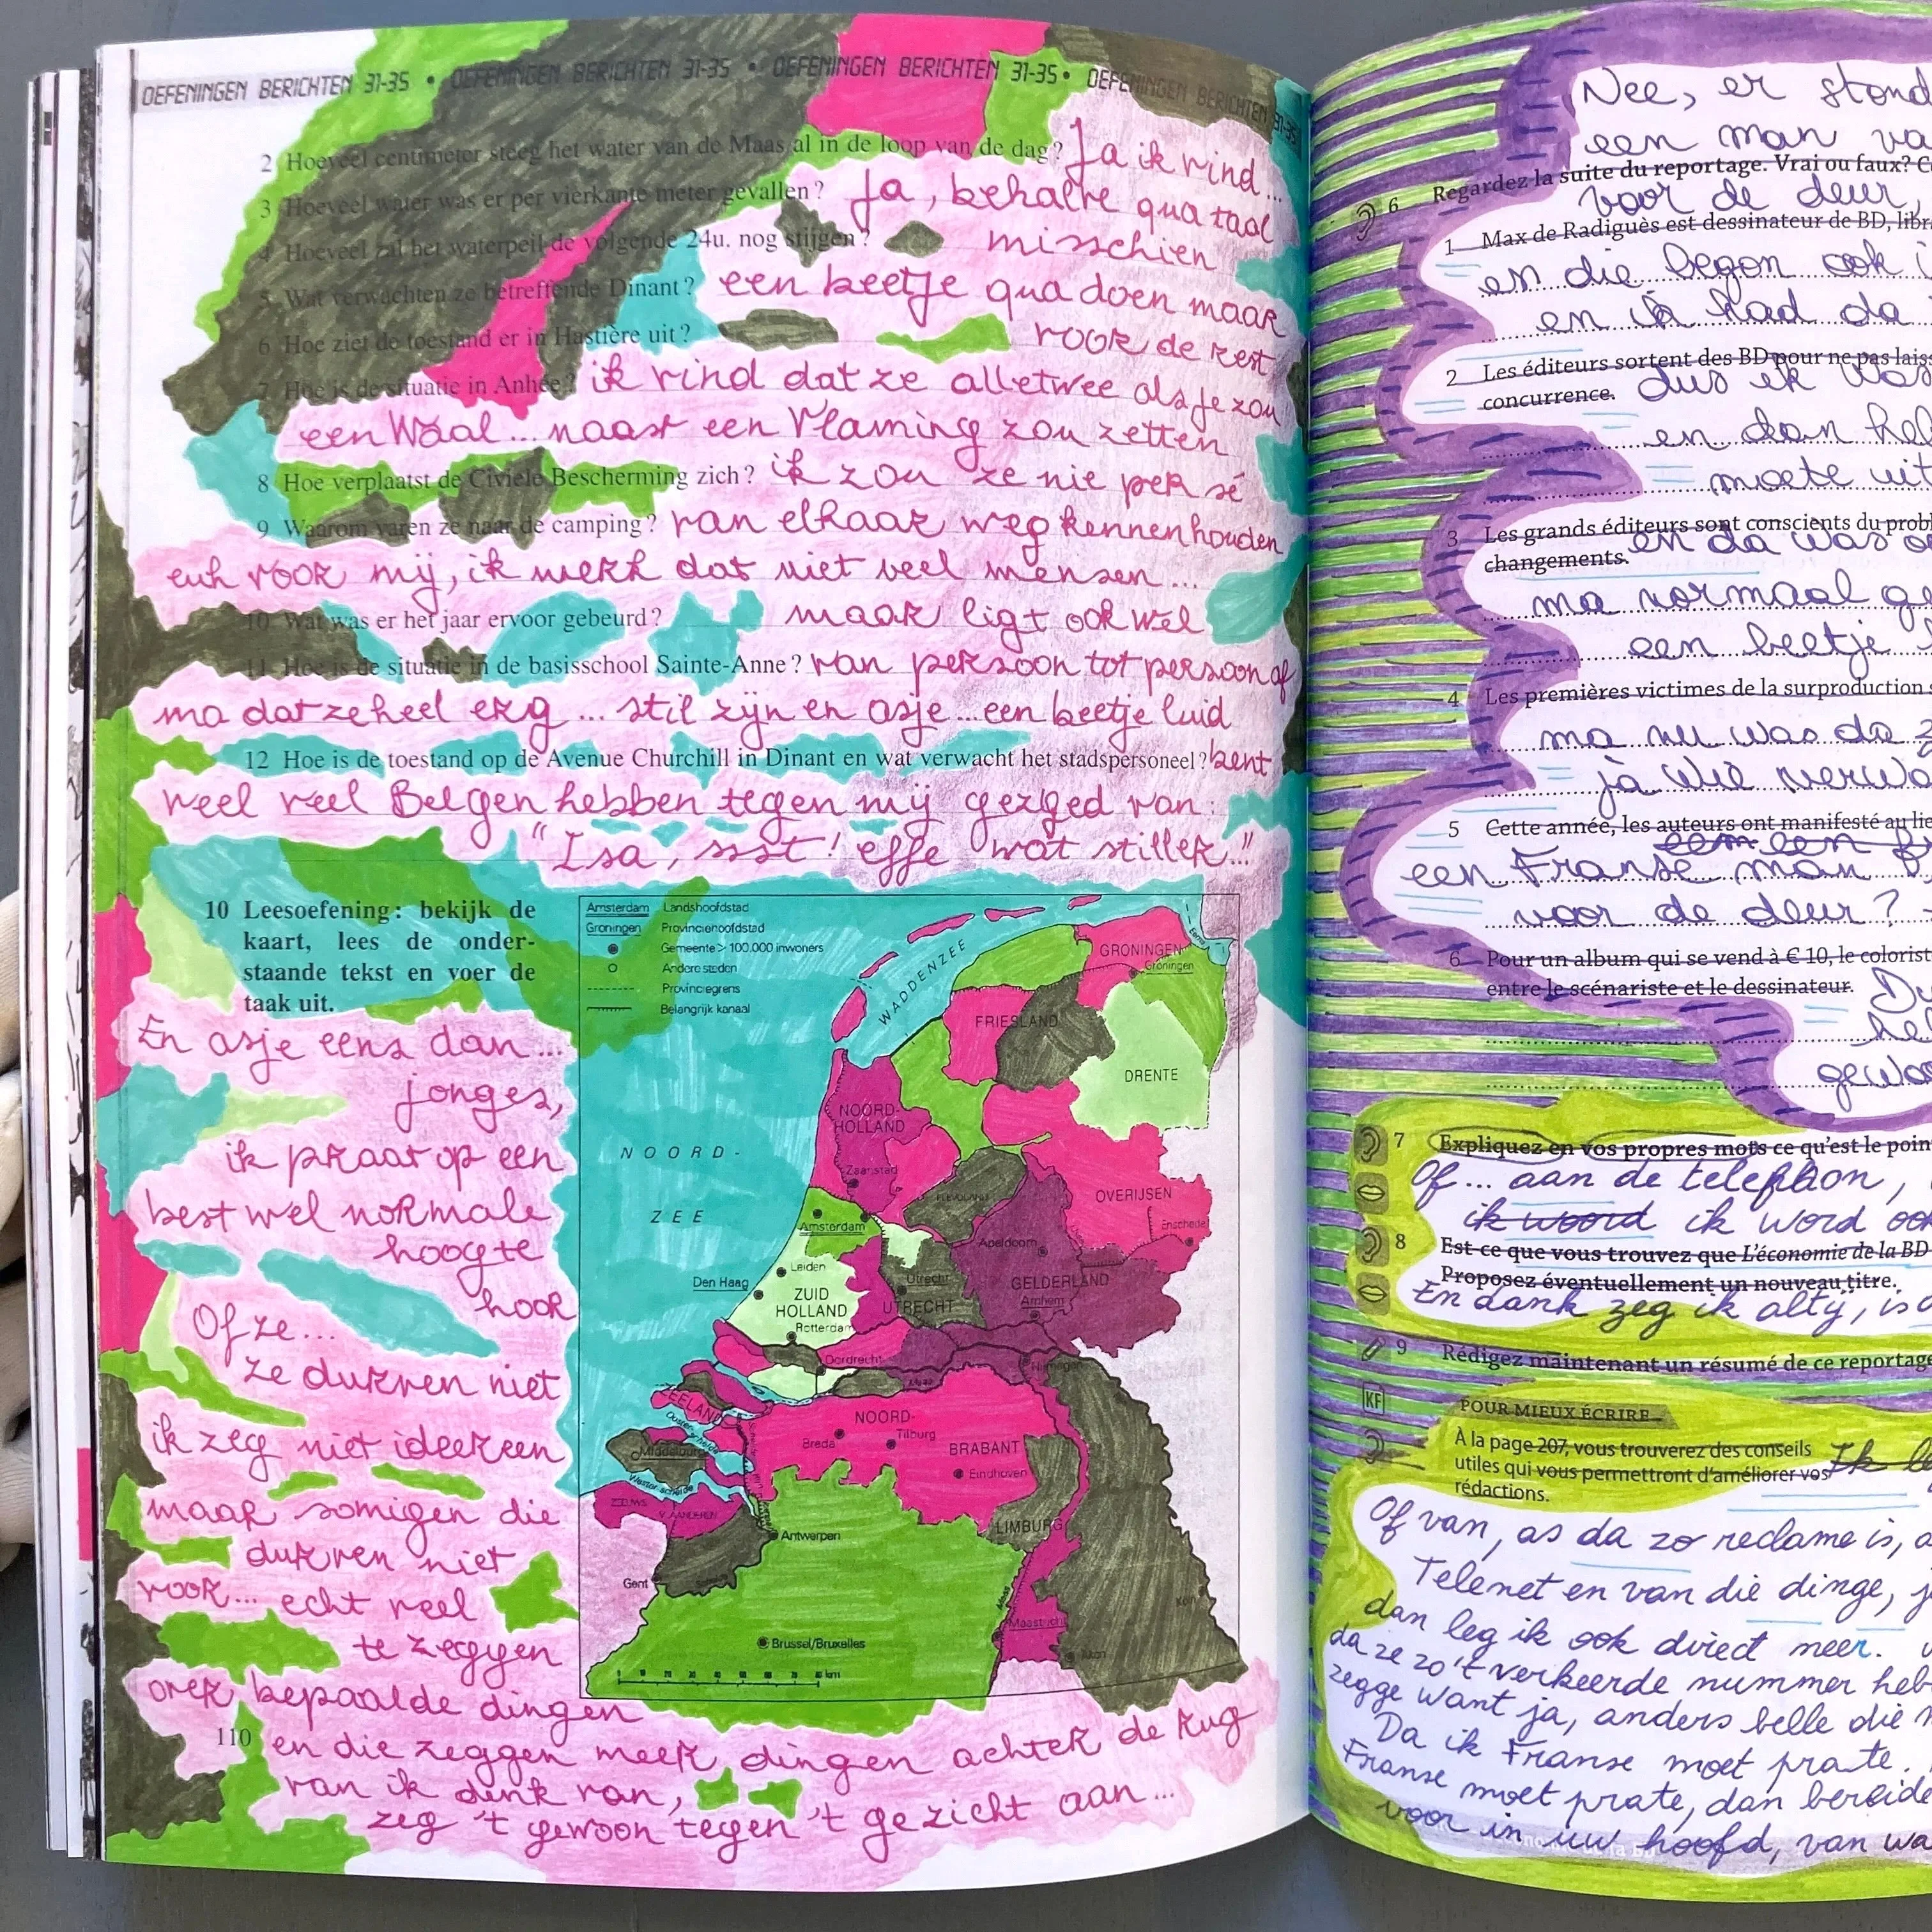 OEFENINGEN BERICHTEN 31-35 • OEFENINGEN BERICHTEN 31-35 • OEFENINGEN BERICHTEN 31-35 • OEFENINGEN BERICHTEN 31-35
2 Hoeveel centimeter steeg het water van de Maas al in de loop van de dag? Ja ik vind...
3 Hoeveel water was er per vierkante meter gevallen? Ja, behalve qua taal
4 Hoeveel zal het waterpeil de volgende 24u. nog stijgen? misschien
5 Wat verwachten ze betreffende Dinant? een beetje qua doen maar
6 Hoe ziet de toestand er in Hastière uit? voor de rest
7 Hoe is de situatie in Anhée? ik vind dat ze alletwee als je zou
een Waal... naast een Vlaming zou zetten
8 Hoe verplaatst de Civiele Bescherming zich? ik zou ze nie per sé
9 Waarom varen ze naar de camping? van elkaar weg kennen houden
euh voor mij, ik merk dat niet veel mensen...
10 Wat was er het jaar ervoor gebeurd? maar ligt ook wel
11 Hoe is de situatie in de basisschool Sainte-Anne? van persoon tot persoon of
ma dat ze heel erg... stil zijn en asje... een beetje luid
12 Hoe is de toestand op de Avenue Churchill in Dinant en wat verwacht het stadspersoneel? bent
veel veel Belgen hebben tegen mij gezged van:
"Isa, ssst! effe wat stiller..."
10 Leesoefening: bekijk de
kaart, lees de onder-
staande tekst en voer de
taak uit.
En asje eens dan...
jonges,
ik praat op een
best wel normale
hoogte
hoor
Of ze...
ze durven niet
ik zeg niet iedereen
maar somigen die
durven niet
voor... echt veel
te zeggen
over bepaalde dingen
110 en die zeggen meer dingen achter de rug
van ik denk van,
zeg 't gewoon tegen 't gezicht aan...
Amsterdam Landshoofdstad
Groningen Provinciehoofdstad
Gemeente > 100.000 inwoners
Andere steden
Provinciegrens
Belangrijk kanaal
WADDENZEE
Eems
GRONINGEN
Groningen
FRIESLAND
DRENTE
NOORD-
HOLLAND
NOORD-
ZEE
Zaanstad
FLEVOLAND
OVERIJSEN
Enschede
Amsterdam
Apeldoorn
Leiden
Den Haag
ZUID
HOLLAND
Utrecht
UTRECHT
GELDERLAND
Arnhem
Rotterdam
Dordrecht
Nijmegen
Maas
ZEELAND
Oosterschelde
Middelburg
Westerschelde
NOORD-
BRABANT
Breda
Tilburg
Eindhoven
ZEEUWS
VLAANDEREN
LIMBURG
Antwerpen
Gent
Maas
Maastricht
Köln
Brussel/Bruxelles
0 10 20 30 40 50 60 70 80 km
Nee, er stond
een man va
6 Regardez la suite du reportage. Vrai ou faux? C
voor de deur,
1 Max de Radiguès est dessinateur de BD, libr
en die begon ook i
en ik had da
2 Les éditeurs sortent des BD pour ne pas laiss
concurrence. dus ik was
en dan hel
moete uit
3 Les grands éditeurs sont conscients du probl
changements. en da was o
ma normaal ge
een beetje
4 Les premières victimes de la surproduction s
ma nu was da z
ja wie verwa
5 Cette année, les auteurs ont manifesté au lie
een Franse man
voor de deur?
6 Pour un album qui se vend à € 10, le colorist
entre le scénariste et le dessinateur. Du
hel
gewoo
7 Expliquez en vos propres mots ce qu'est le poin
Of... aan de telephoon,
ik woord ik word ook
8 Est-ce que vous trouvez que L'économie de la BD
Proposez éventuellement un nouveau titre.
En dank zeg ik altij, is
9 Rédigez maintenant un résumé de ce reportage
KF
POUR MIEUX ÉCRIRE
À la page 207, vous trouverez des conseils
utiles qui vous permettront d'améliorer vos
rédactions.
Ik
Of van, as da zo reclame is, a
Telenet en van die dinge, j
dan leg ik ook direct meer.
da ze zo 't verkeerde nummer heb
zegge want ja, anders belle die
Da ik Franse moet prate.
Franse moet prate, dan bereide
voor in uw hoofd, van wa